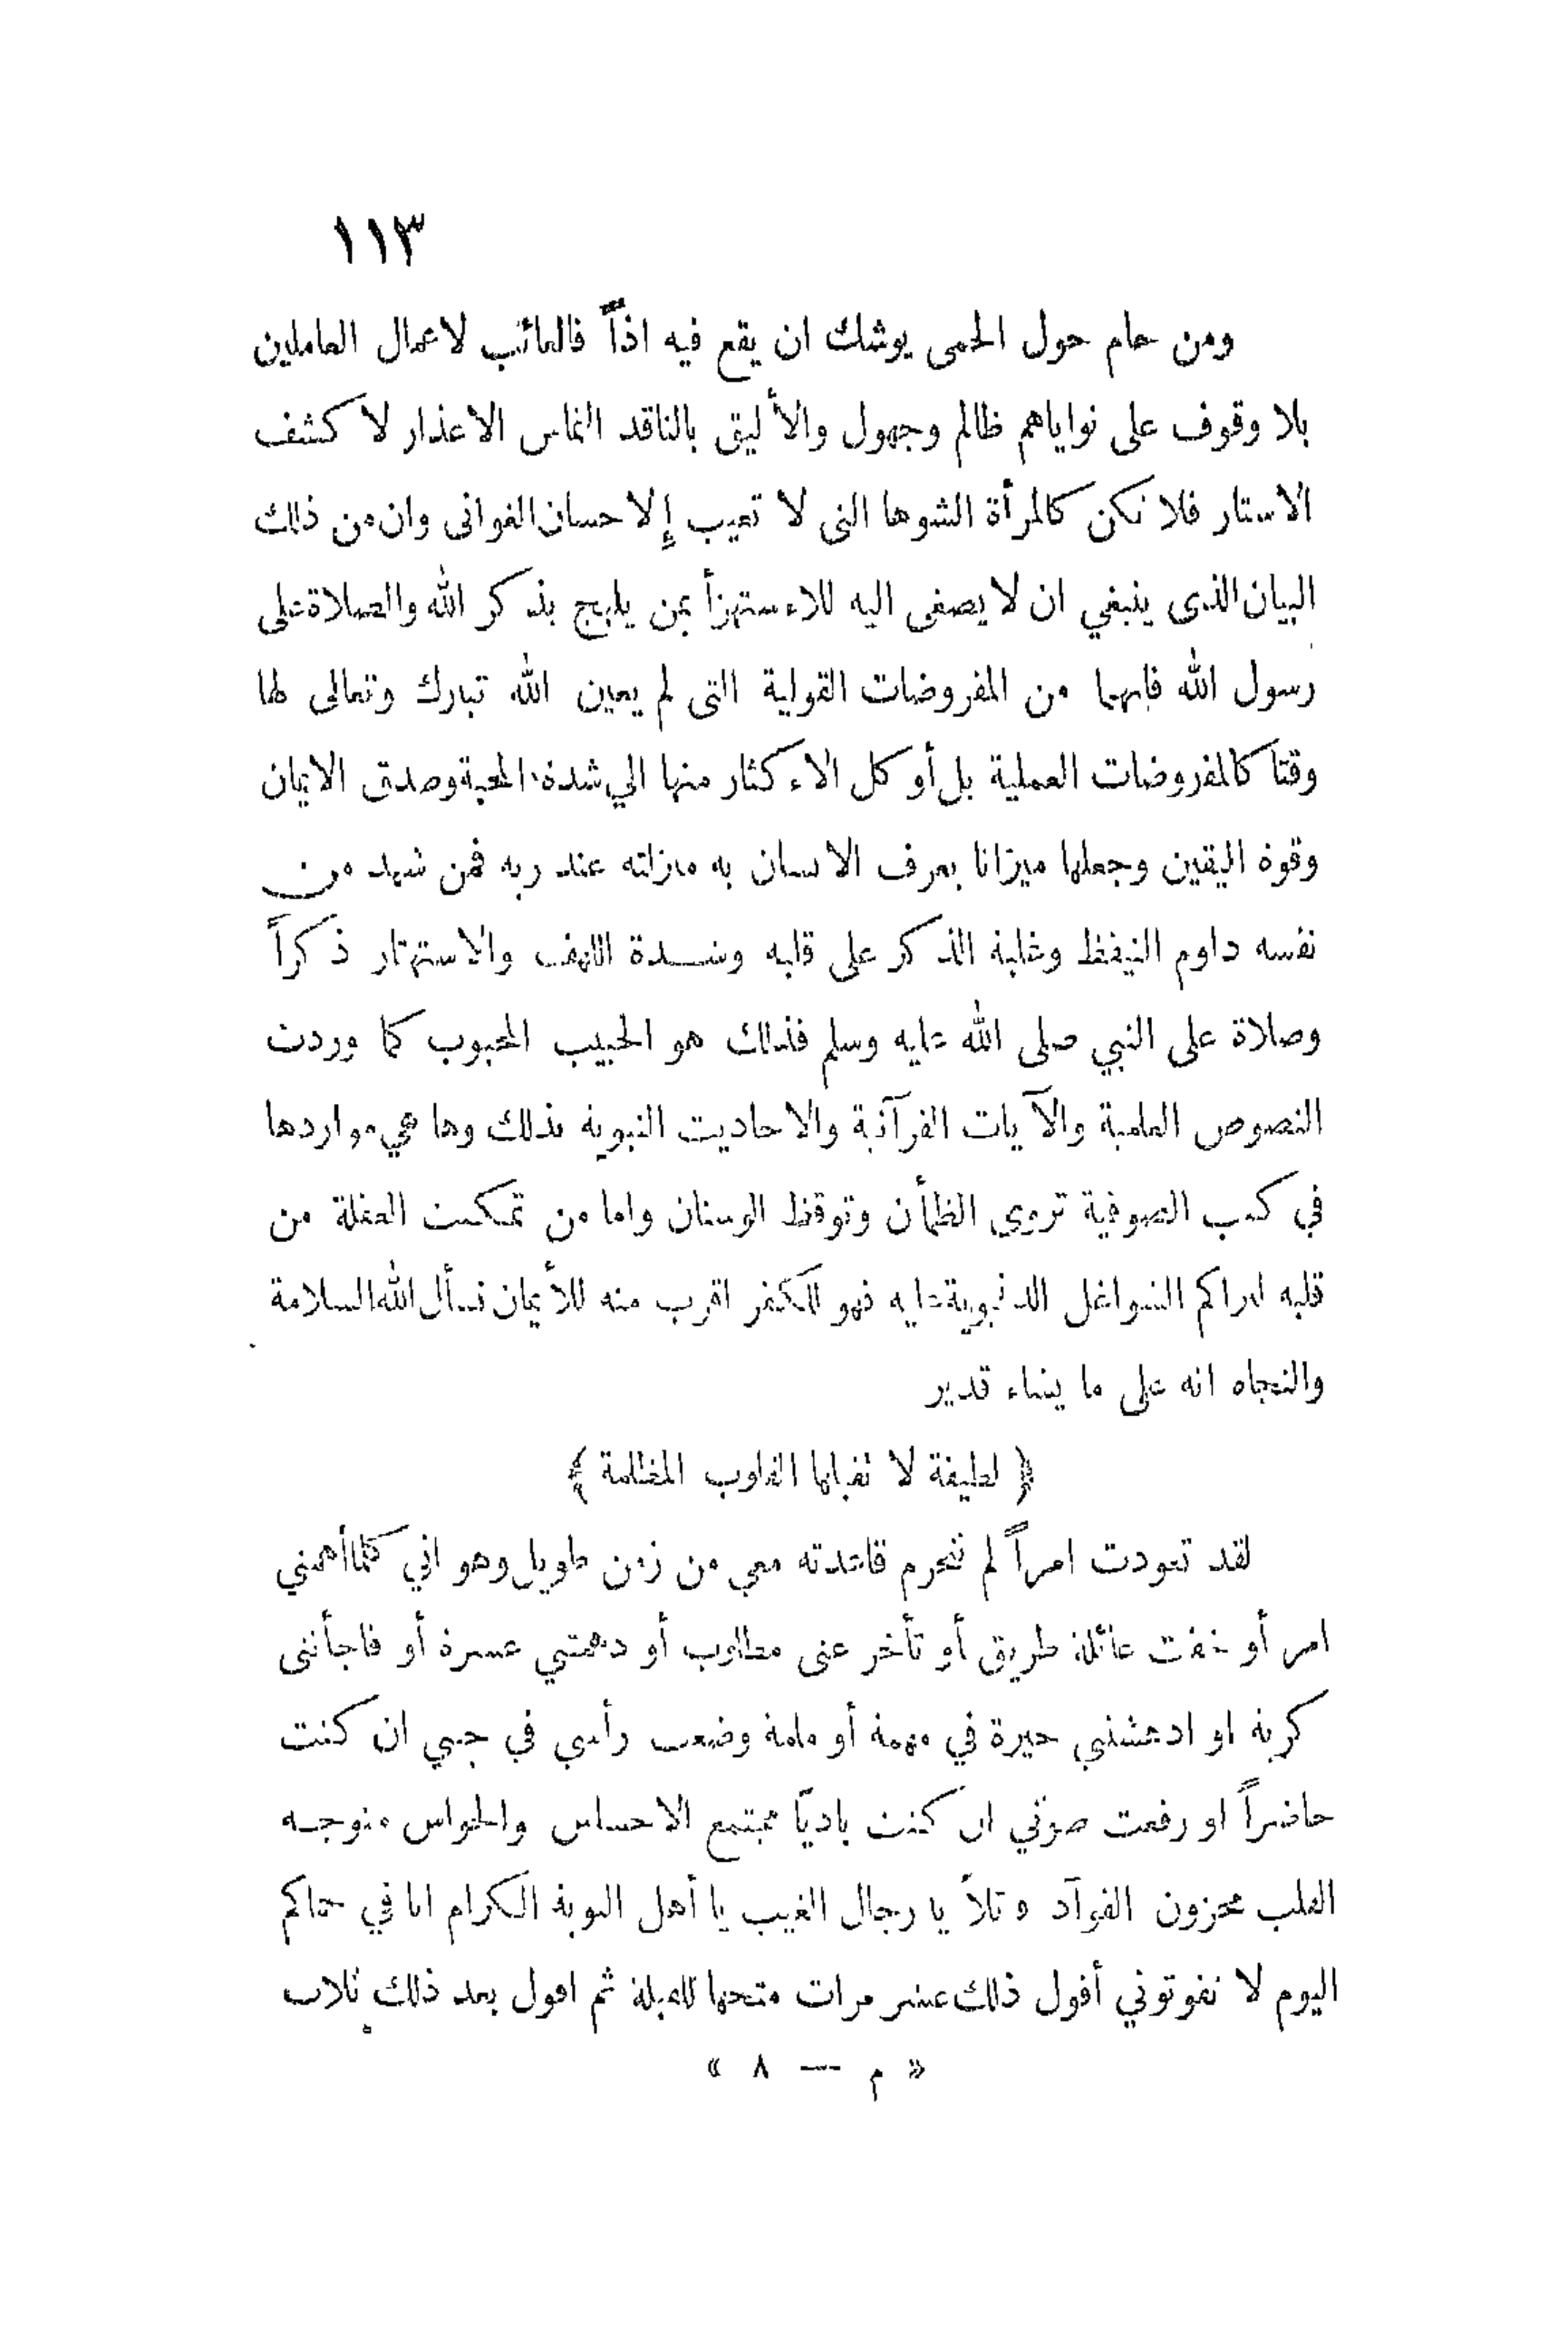 ١١٣
ومن حام حول الحمى يوشك ان يقع فيه اذاً فالعائب لاعمال العاملين
بلا وقوف على نواياهم ظالم وجهول والأليق بالناقد التماس الاعذار لا كشف
الاستار فلا تكن كالمرأة الشوها التى لا تعيب إلا حسان الغوانى وان من ذلك
البيان الذى ينبغي ان لا يصغى اليه للاءستهزأ بمن يلهج بذكر الله والصلاة على
رسول الله فانهما من المفروضات القولية التى لم يعين الله تبارك وتعالى لها
وقتا كالمفروضات العملية بل أوكل الاءكثار منها الي شدة المحبة وصدق الايمان
وقوة اليقين وجعلها ميزانا يعرف الانسان به منزلته عند ربه فمن شهد من
نفسه داوم التيقظ وغلبة الذكر على قلبه وشدة اللهف والاستهتار ذكراً
وصلاة على النبي صلى الله عليه وسلم فذلك هو الحبيب المحبوب كما وردت
النصوص العلمية والآيات القرآنية والاحاديت النبوية بذلك وها هي مواردها
في كتب الصوفية تروي الظمأن وتوقظ الوسنان واما من تمكنت الغفلة من
قلبه لتراكم الشواغل الدنيوية عليه فهو للكفر اقرب منه للأيمان نسأل الله السلامة
والنجاه انه على ما يشاء قدير
﴿ لطيفة لا تقبلها القلوب المظلمة ﴾
لقد تعودت امراً لم تنخرم قاعدته معي من زمن طويل وهو اني كلما أهمني
امر أو خفت غائلة طريق أو تأخر عنى مطلوب أو دهمتني عسرة أو فاجأتنى
كربة او ادهشتني حيرة في مهمة أو ملمة وضعت رأسي في جيبي ان كنت
حاضراً او رفعت صوتي ان كنت باديًا مجتمع الاحساس والحواس متوجه
القلب محزون الفوآد قائلاً يا رجال الغيب يا أهل النوبة الكرام انا في حماكم
اليوم لا تفوتوني أقول ذلك عشر مرات متجها للقبلة ثم اقول بعد ذلك ثلاث
« م — ٨ »